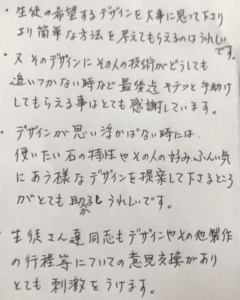 ・生徒の希望するデザインを大事に思って下さり
より簡単な方法を考えてもらえるのはうれしい
です。
・又そのデザインにその人の技術がどうしても
追いつかない時など最後迄キチッと手助け
してもらえる事はとても感謝しています。
・デザインが思い浮かばない時には
使いたい石の特性やその人の好みふんい気
にあう様なデザインを提案して下さるところ
がとても助かるしうれしいです。
・生徒さん達同志もデザインやその他製作
の行程等についての意見交換があり
とても刺激をうけます。